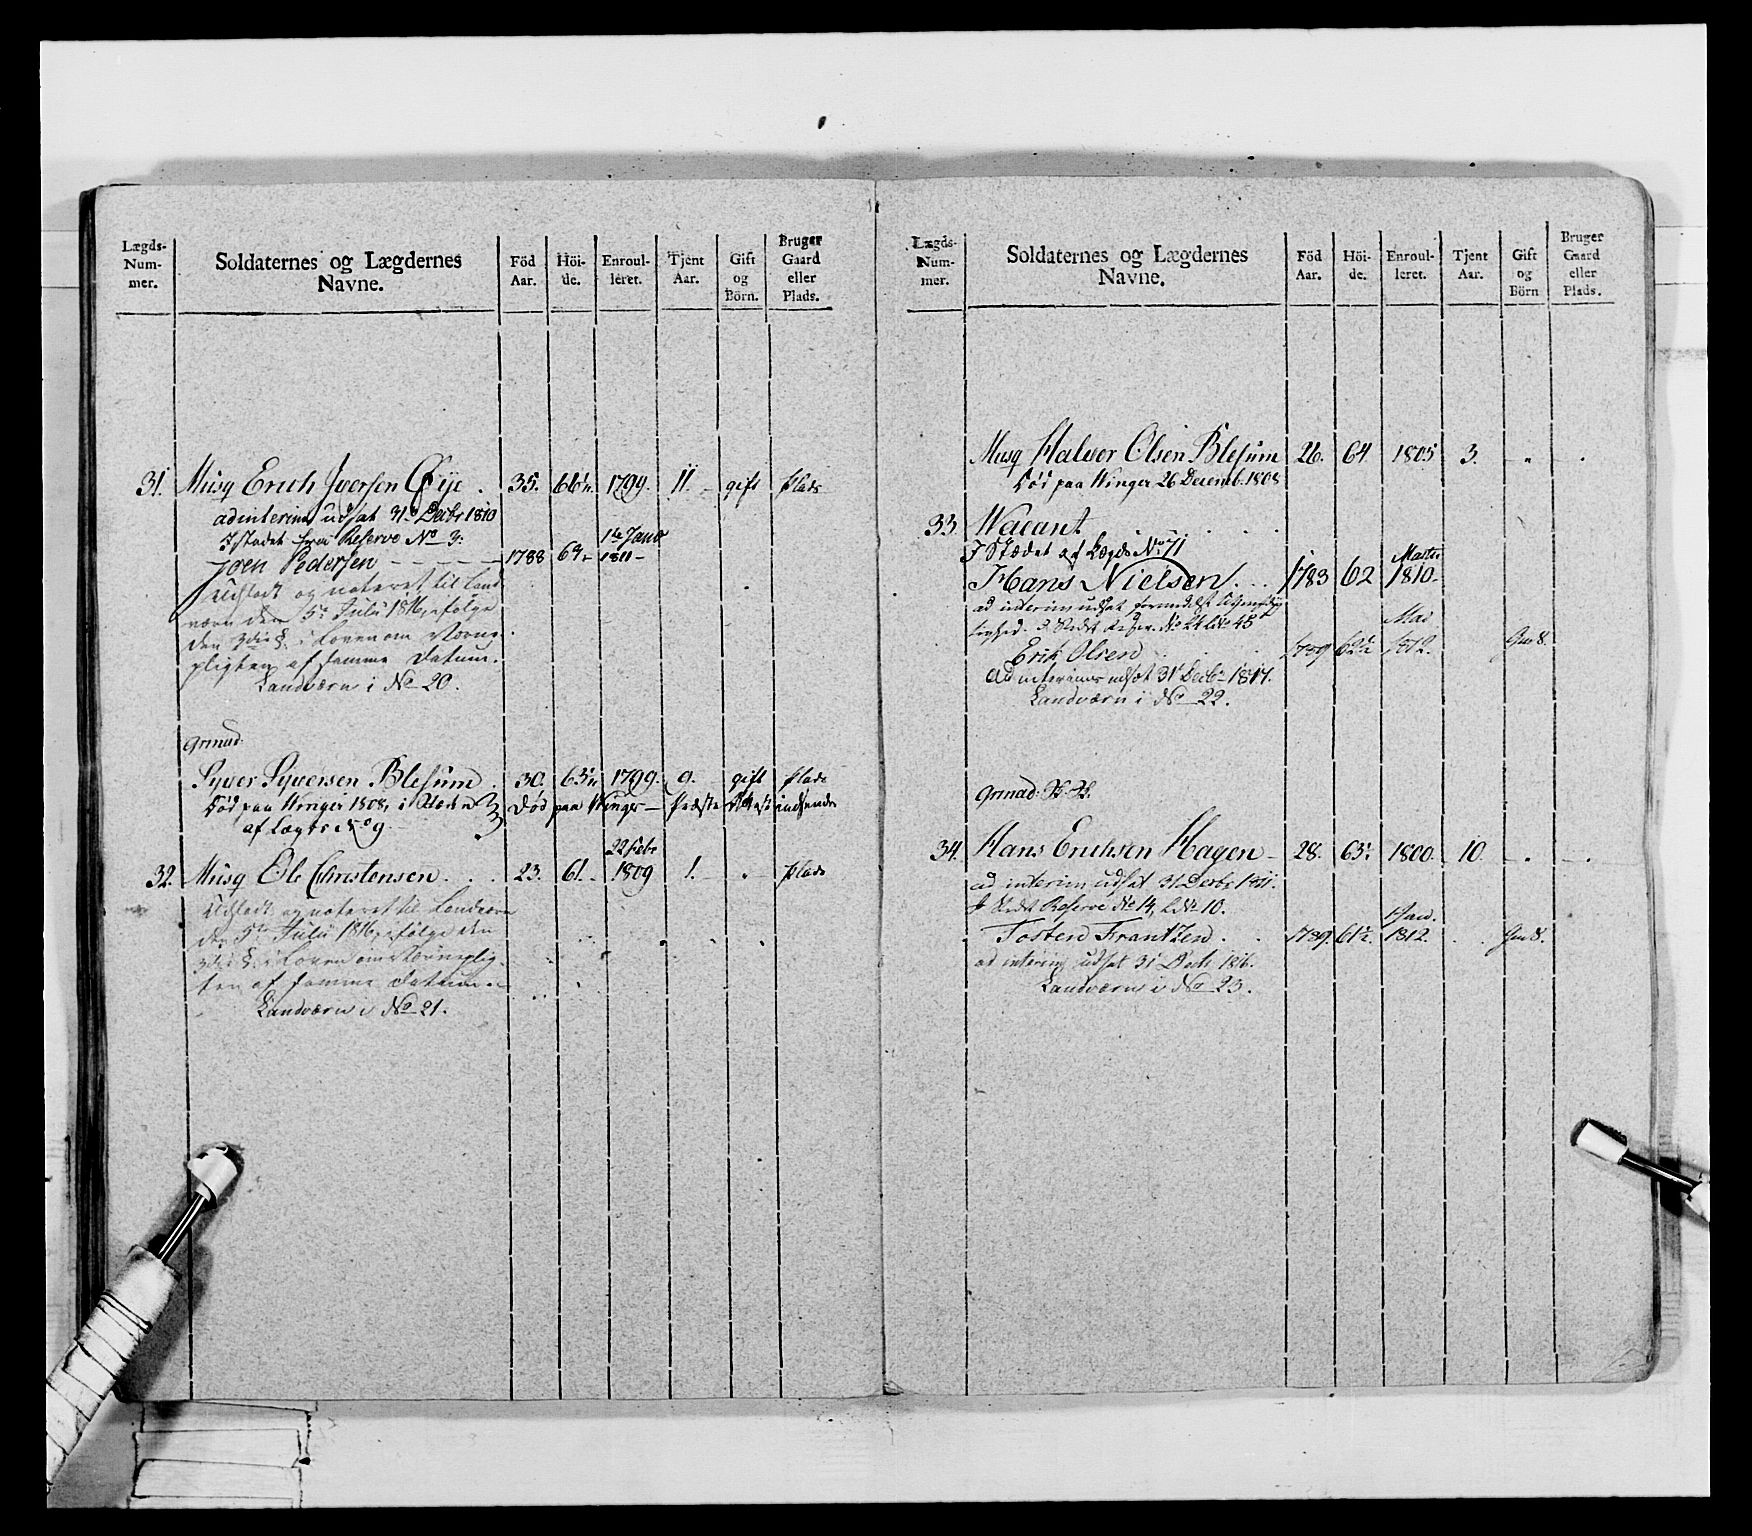 Lægds-Num-mer.
Soldaternes og Lægdernes Navne.
Föd Aar.
Höi-de.
Enroul-leret.
Tjent Aar.
Gift og Börn.
Bruger Gaard eller Plads.
31. Musq Erich Iversen Øÿe. 35. 66½. 1799. 11. gift plads
ad interim udsat 31. Decbr 1810
I stedet fra Reserve No 3.
1te Janv
Joen Pedersen 1788 64 1811
Udslædt og noteret til Land
værn den 5te Juli 1816, ifølge
den 3die §. i Loven om Værne
pligten af samme Datum.
Landværn i No 20.
Grenad.
Syver Syversen Blesum. 30. 63½ 1799. 9. gift plads
Død paa Winger 1808, i Stæden Død paa Winger Præste Attest indsendes
af Lægts No 9
22 Febr
32. Musq Ole Christensen. 23. 61. 1809 1. plads
Udslædt og noteret til Landværn
den 5te Juli 1816, ifølge den
3die §. i Loven om Værneplig-
ten af samme Datum.
Landværn i No 21.
Lægds-Num-mer.
Soldaternes og Lægdernes Navne.
Föd Aar.
Höi-de.
Enroul-leret.
Tjent Aar.
Gift og Börn
Bruger Gaard eller Plads.
Musq Halvor Olsen Blesum 26. 64 1805 3.
Død paa Winger 26 Decemb. 1808
33. Wacant
I Stædet af Lægds No 71
Martz
Hans Nielsen. 1783 62 1810.
ad interim udsat formedelst
No 24 Litr 45
Mai
Erik Olsen 1789 62½ 1812.
Ad interims udsat 31 Decbr 1817.
Landværn i No 22.
Grenad:
34. Hans Erichsen Hagen 28. 63. 1800. 10.
ad interim udsat 31 Decbr 1811.
I Stedt Reserve No 14, Litr 10.
1 Jan.
Tosten Frantzen. 1789. 61½ 1812.
ad interim udsat 31 Decb. 1816.
Landværn i No 23.